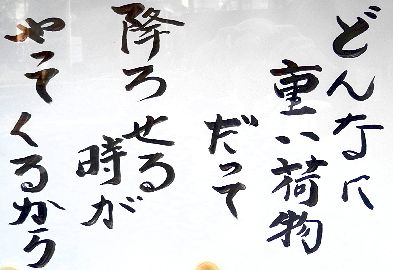 どんなに
重い荷物
だって
降ろせる
時が
やってくるから